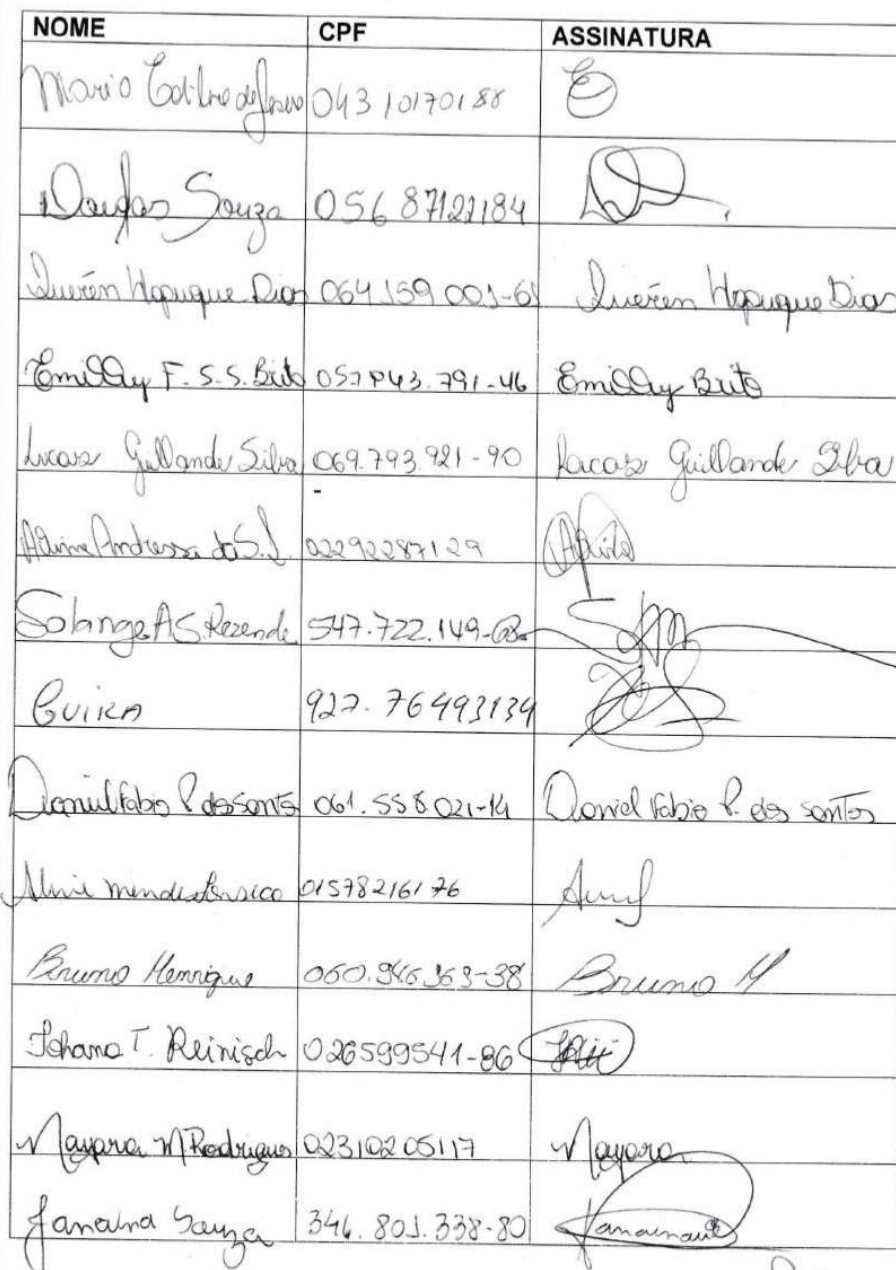 NOME CPF ASSINATURA
Mario de Jesus 04310170188
Douglas Souza 05687121184
Querén Hapuque Dias 064.159.001-61 Querén Hapuque Dias
Emilly F. S. S. Brito 057.843.791-46 Emilly Brito
Lucas Guillande Silva 069.793.921-90 Lucas Guillande Silva
-
Andressa da S. 02292287129
Solange A S Rezende 547.722.149-68
GUIRA 927.76493134
Daniel Fabio P. dos Santos 061.558.021-14 Daniel Fabio P. dos Santos
Aline mendes 01578216176
Bruno Henrique 060.946.363-38 Bruno H
Johana T. Reinisch 026599541-86
Mayara M Rodrigues 02310205117 Mayara
Janaina Souza 346.801.338-80 Janaina